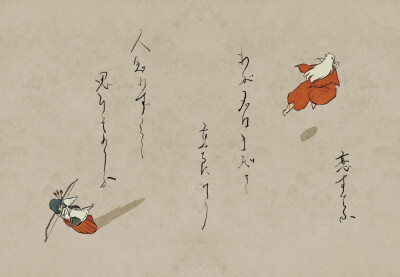 恋すてふ
わが名はまだき
立ちにけり
人知れずこそ
思ひそめしか